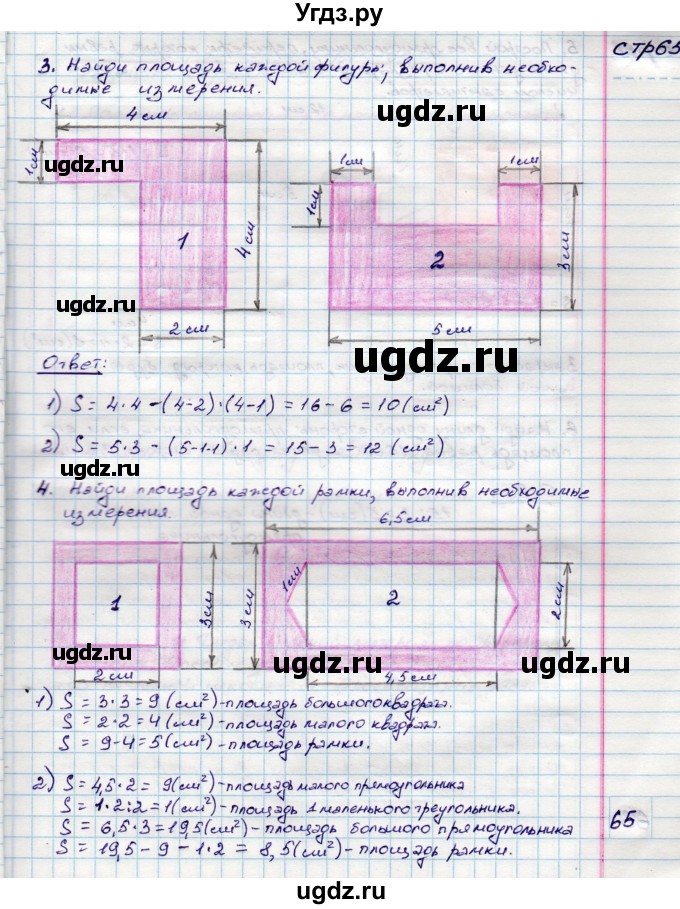 Угдз.ру
стр65
3. Найди площадь каждой фигуры, выполнив необхо-
димые измерения.
4 см
1 см
ugdz.ru
1
4 см
ugdz.ru
2 см
1 см
1 см
ugdz.ru
1 см
2
3 см
5 см
ugdz.ru
Ответ:
1) S = 4·4-(4-2)·(4-1) = 16-6 = 10(см²)
ugdz.ru
2) S = 5·3 - (5-1-1)·1 = 15-3 = 12 (см²)
ugdz.ru
4. Найди площадь каждой рамки, выполнив необходимые
измерения.
6,5 см
1
3 см
2 см
ugdz.ru
3 см
1 см
2
2 см
4,5 см
ugdz.ru
1) S = 3·3 = 9 (см²)-площадь большого квадрата.
S = 2·2 = 4(см²)-площадь малого квадрата.
S = 9-4 = 5(см²)-площадь рамки.
ugdz.ru
2) S = 4,5·2 = 9(см²)-площадь малого прямоугольника
S = 1·2:2 = 1(см²)-площадь 1 маленького треугольника.
S = 6,5·3 = 19,5(см²)-площадь большого прямоугольника
S = 19,5 - 9 - 1·2 = 8,5(см²)-площадь рамки.
65
ugdz.ru
ugdz.ru